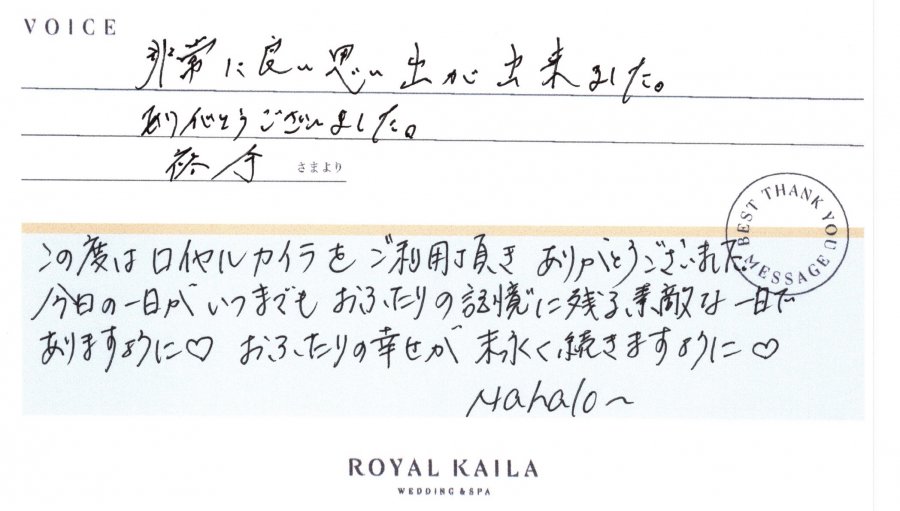 VOICE
非常に良い思い出が出来ました。
ありがとうございました。
さまより
BEST THANK YOU MESSAGE
この度はロイヤルカイラをご利用頂き ありがとうございました
今日の一日が いつまでも おふたりの記憶に残る素敵な一日で
ありますように♡ おふたりの幸せが 末永く続きますように♡
Mahalo~
ROYAL KAILA
WEDDING & SPA